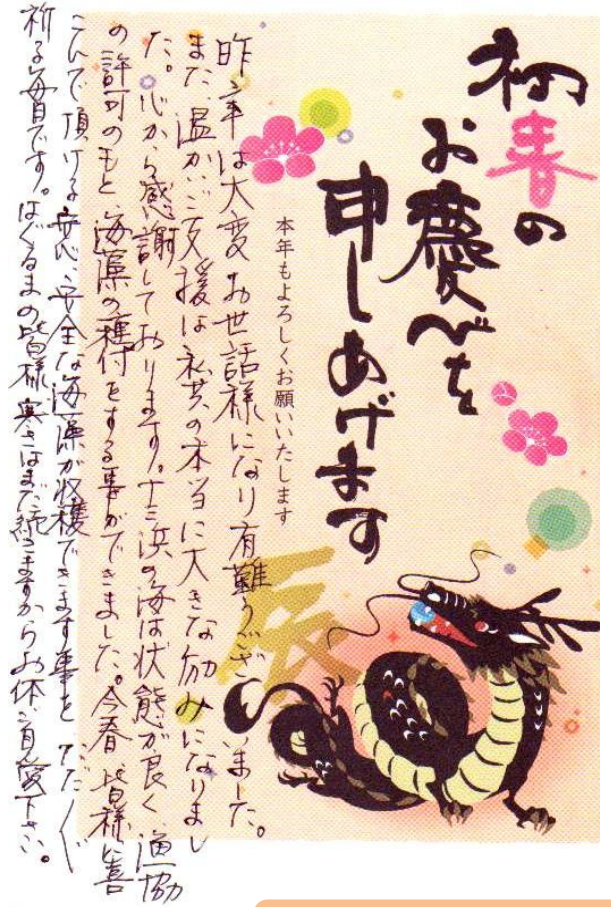 初春の
お慶びを
申しあげます
本年もよろしくお願いいたします
辰
昨年は大変お世話様になり有難うございました。
また温かいご支援は私共の本当に大きな励みになりまし
た。心から感謝しております。十三浜の海は状態が良く漁協
の許可のもと、海藻の種付をする事ができました。今春皆様に喜
こんで頂ける安心、安全な海藻が収穫できます事をただただ
祈る毎日です。はぐるまの皆様寒さはまだ続きますからお体ご自愛下さい。